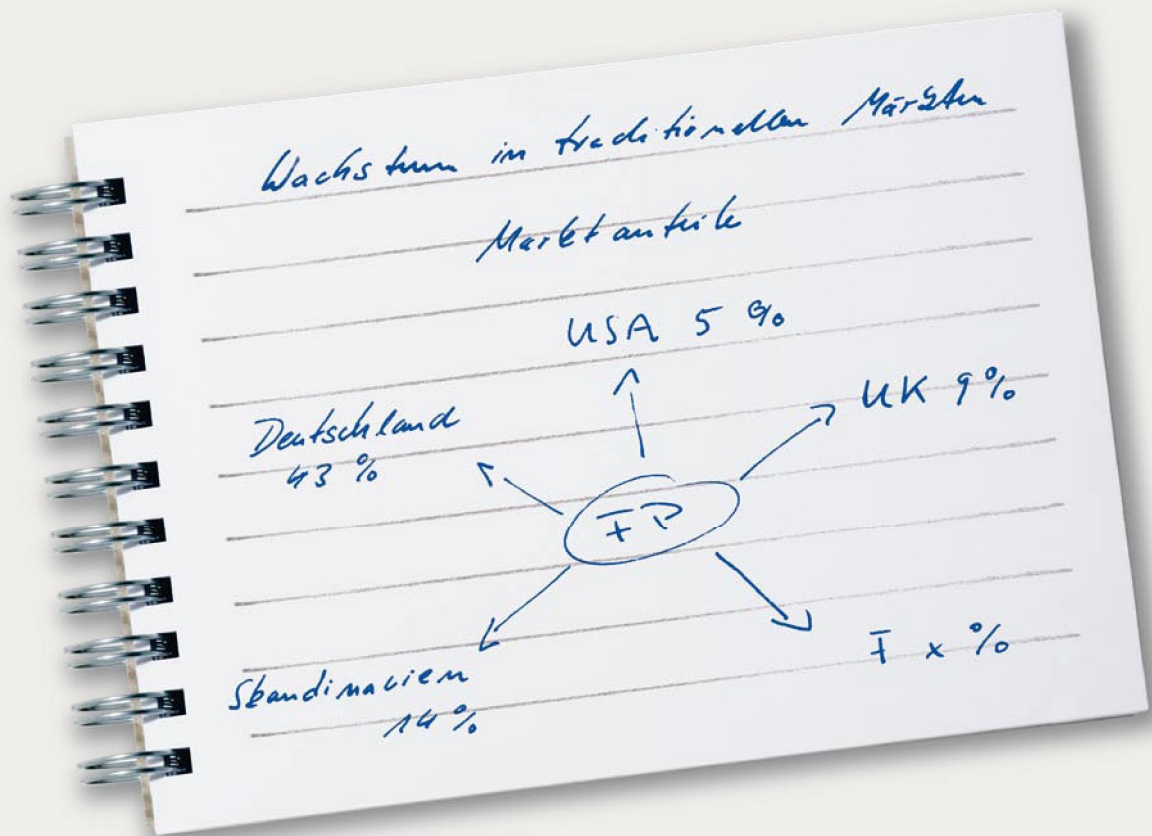 Wachstum in traditionellen Märkten
Marktanteile
USA 5 %
UK 9 %
Deutschland
43 %
FP
F x %
Skandinavien
14 %